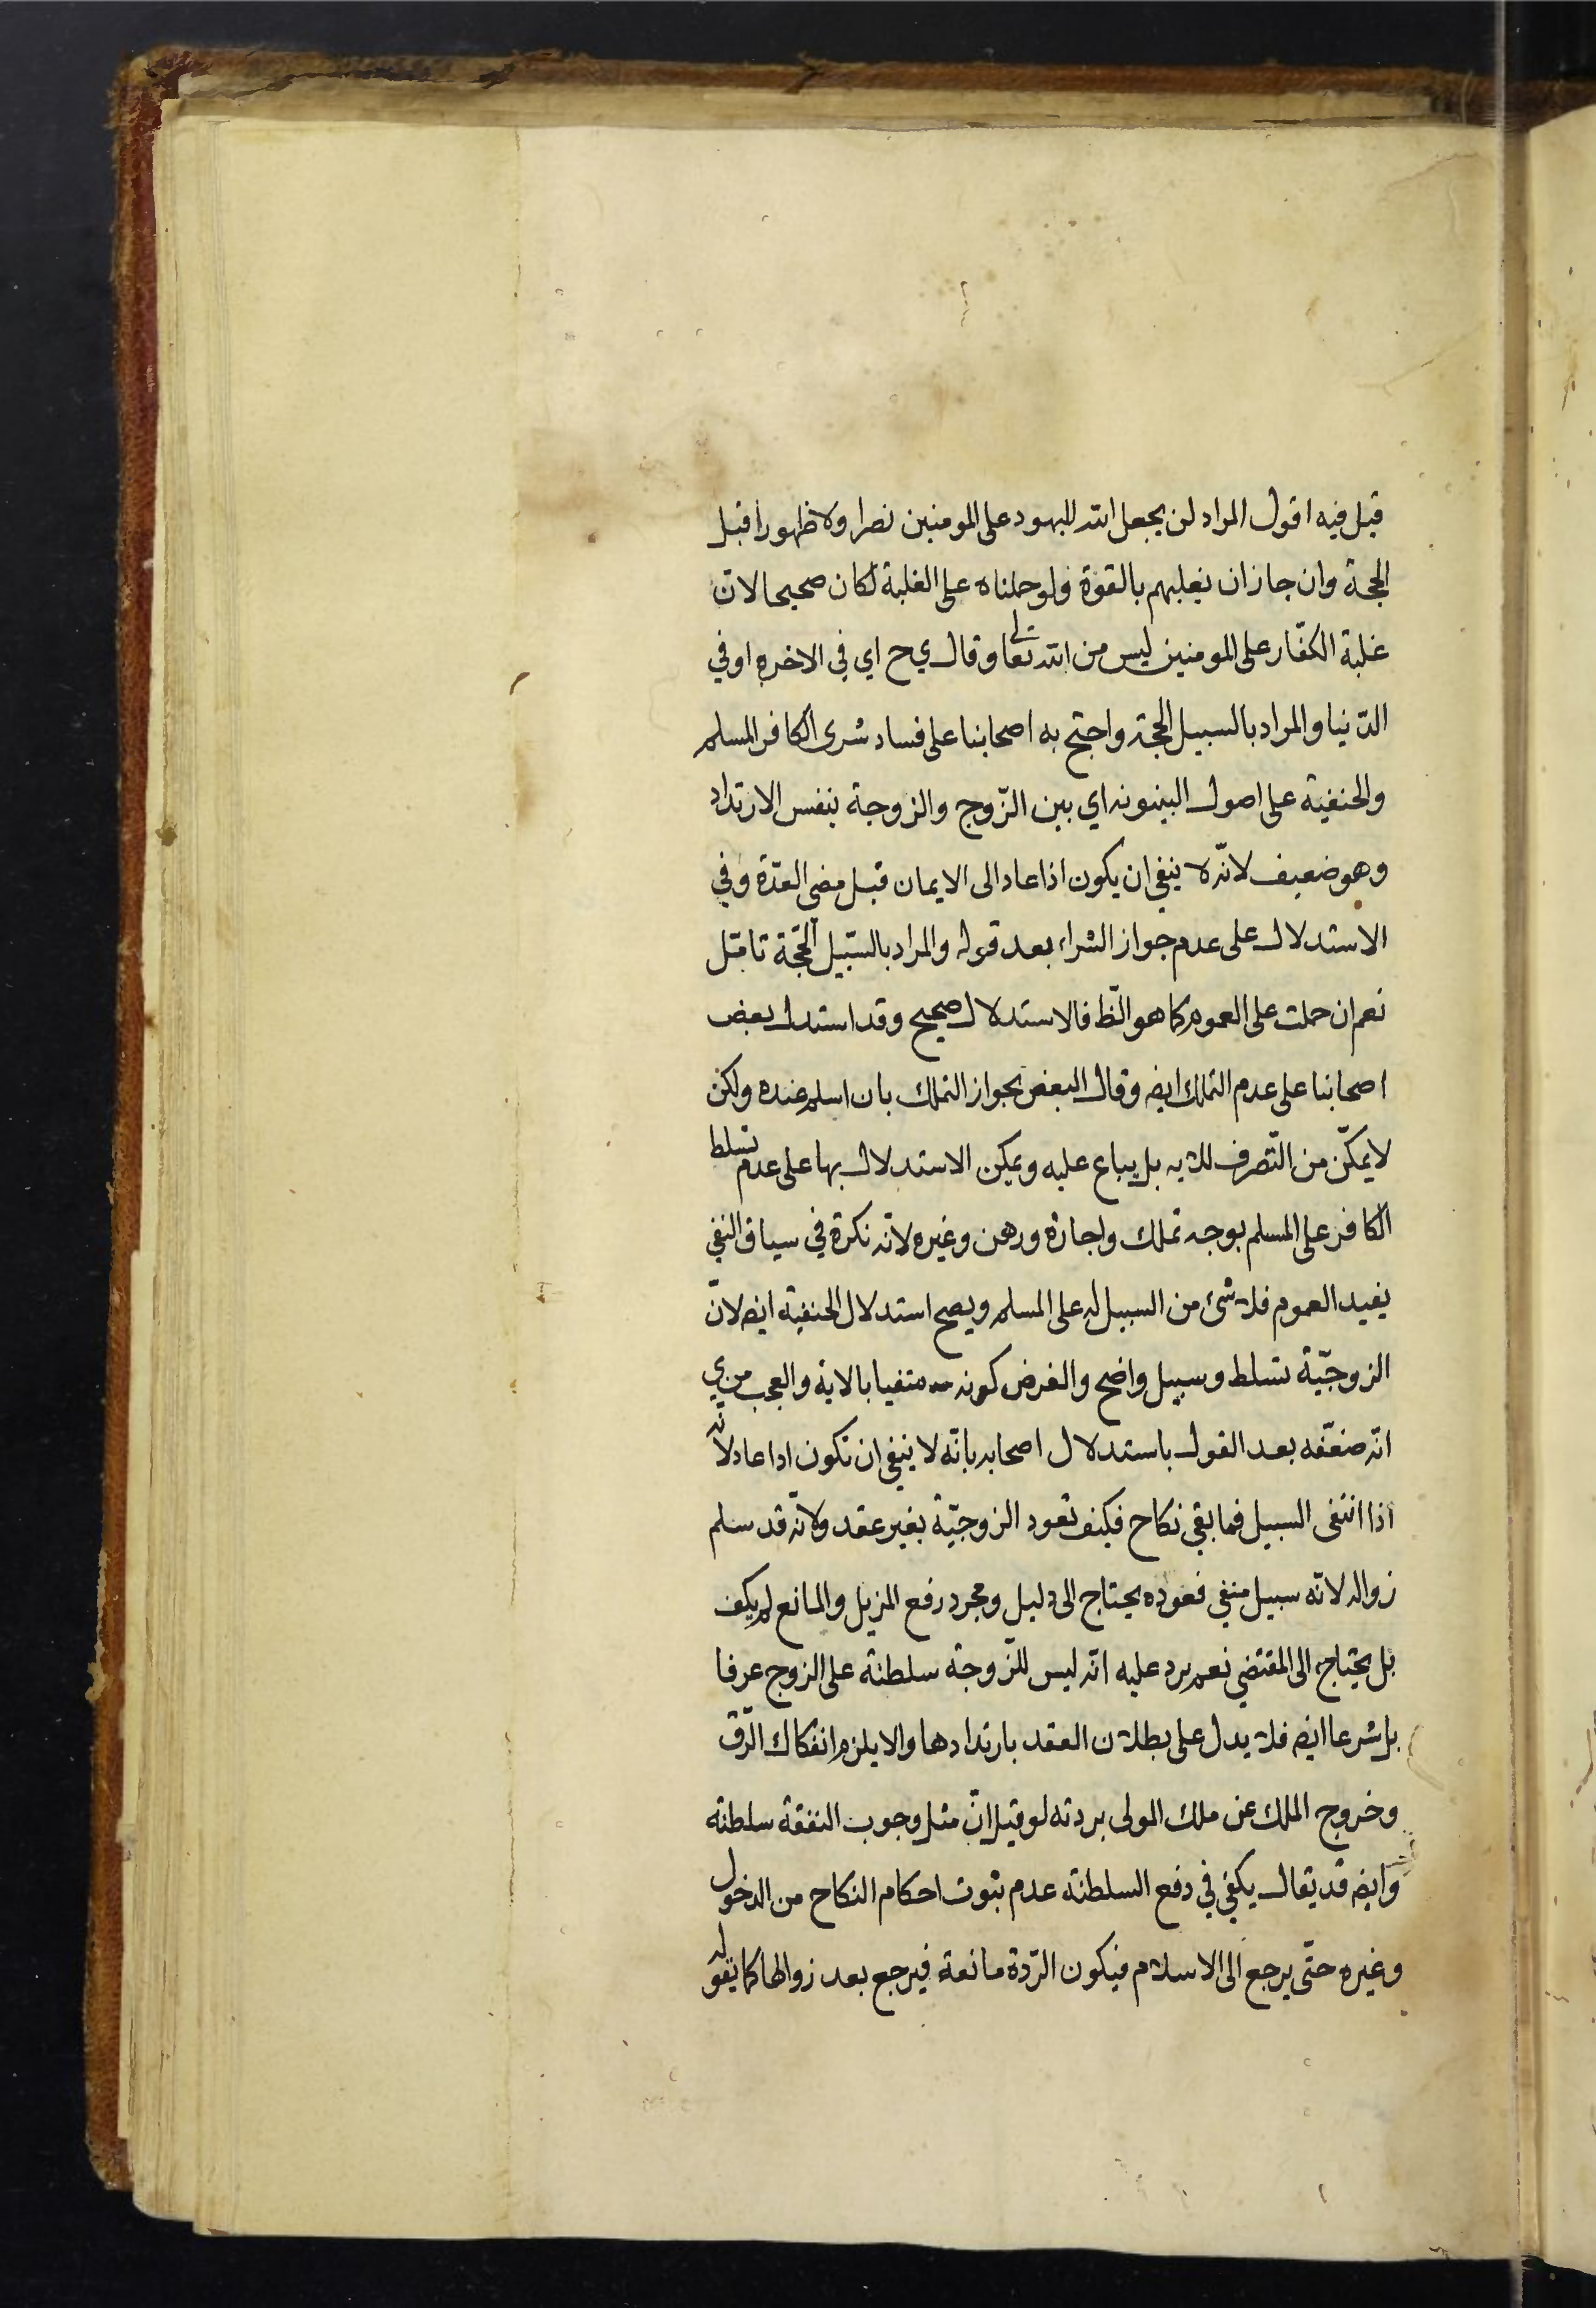 قبل فيه اقول المراد لن يجعل الله لليهود على المومنين نصرا ولا ظهورا قبل
الحجة وان جاز ان يغلبهم بالقوة ولو حملناه على الغلبة لكان صحيحا لان
غلبة الكفّار على المومنين ليس من الله تعالى وقال ي ح اي في الاخرة او في
الدّنيا والمراد بالسبيل الحجة واحتج به اصحابنا على فساد شرى الكافر المسلم
والحنفية على اصول البينونه اي بين الزّوج والزوجة بنفس الارتداد
وهو ضعيف لانّه لا ينفي ان يكون اذا عاد الى الايمان قبل مضي العدّة وفي
الاستدلال على عدم جواز الشراء بعد قوله والمراد بالسّبيل الحجّة تامّل
نعم ان حملت على العموم كما هو الظ فالاستدلال صحيح وقد استدل بعض
اصحابنا على عدم التملك ايضه وقال البعض بجواز التملك بان اسلم عنده ولكن
لا يمكّن من التّصرف للآيه بل يباع عليه ويمكن الاستدلال بها على عدم تسلط
الكافر على المسلم بوجه تملك واجارة ورهن وغيره لانه نكرة في سياق النفي
يفيد العموم فلا شئ من السبيل له على المسلم ويصح استدلال الحنفية ايضه لانّ
الزوجيّة تسلط وسبيل واضح والفرض كونه منفيا بالاية والعجب من ي
انّه ضعّفه بعد القول باستدلال اصحابه بانّه لا ينفي ان تكون اذا عاد لانّه
اذا انتفى السبيل فما بقي نكاح فكيف تعود الزوجيّة بغير عقد ولانّه قد سلم
زواله لانّه سبيل منفي فعوده يحتاج الى دليل ومجرد رفع المزيل والمانع لم يكف
بل يحتاج الى المقتضي نعم يرد عليه انّه ليس للزّوجة سلطنة على الزوج عرفا
بل شرعا ايضه فلا يدل على بطلان العقد بارتدادها والا يلزم انفكاك الرّق
وخروج الملك عن ملك المولى بردته لو قيل انّ مثل وجوب النفقة سلطنة
وايضه قد يقال يكفي في دفع السلطنة عدم ثبوت احكام النكاح من الدخول
وغيره حتّى يرجع الى الاسلام فيكون الردّة مانعة فيرجع بعد زوالها كما يقوله